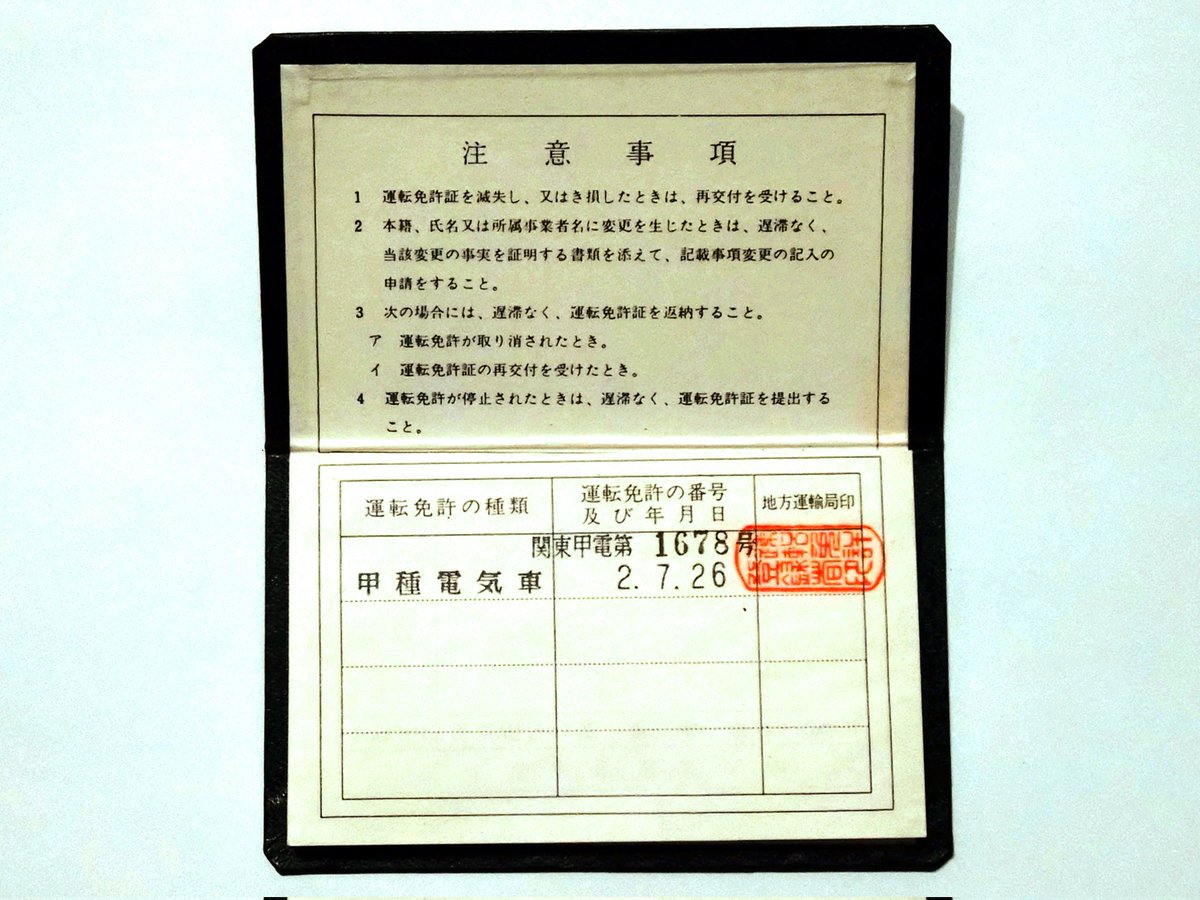 注意事項
1 運転免許証を滅失し、又はき損したときは、再交付を受けること。
2 本籍、氏名又は所属事業者名に変更を生じたときは、遅滞なく、
当該変更の事実を証明する書類を添えて、記載事項変更の記入の
申請をすること。
3 次の場合には、遅滞なく、運転免許証を返納すること。
ア 運転免許が取り消されたとき。
イ 運転免許証の再交付を受けたとき。
4 運転免許が停止されたときは、遅滞なく、運転免許証を提出する
こと。
運転免許の種類
運転免許の番号
及び年月日
地方運輸局印
関東甲電第 1678号
甲種電気車
2.7.26